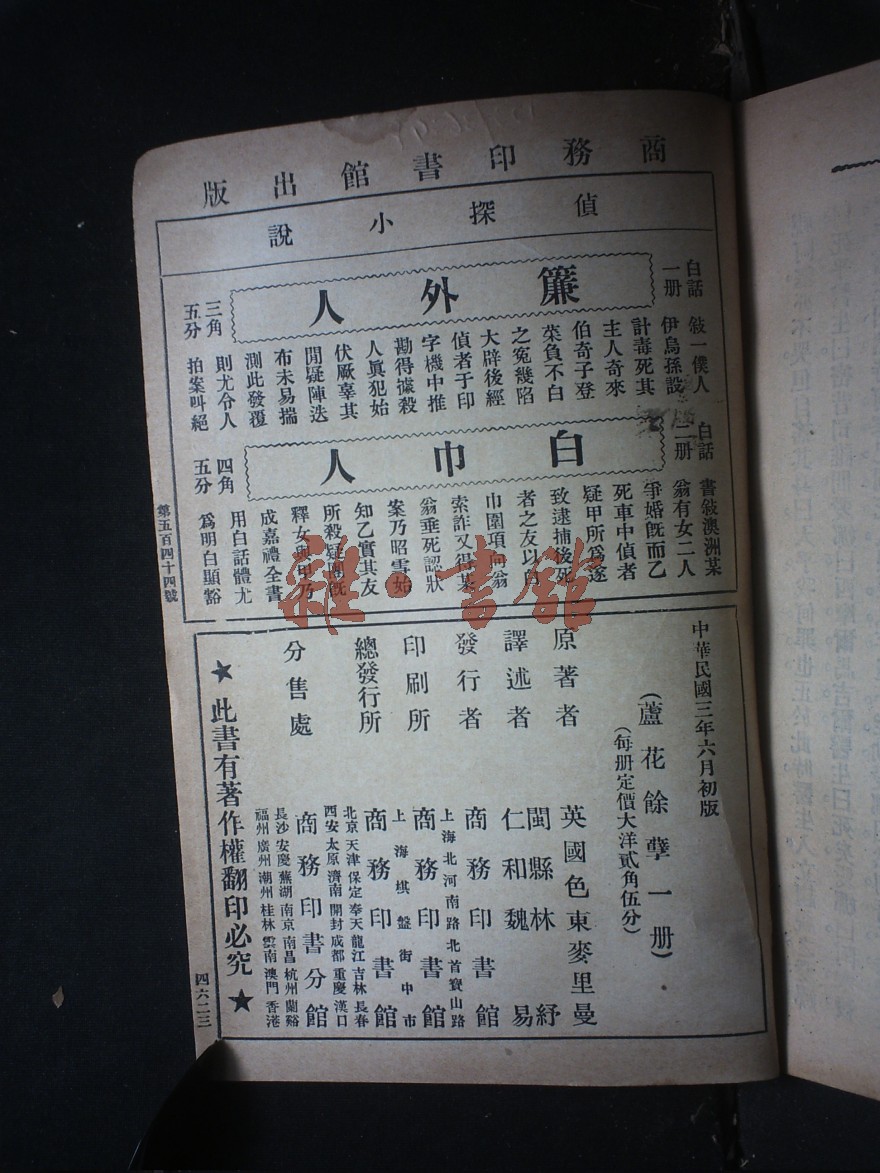 商務印書館出版
偵探小說
白話一册
簾外人
三角五分
敍一僕人
伊烏孫設
計毒死其
主人奇來
伯奇子登
菜負不白
之冤幾陷
大辟後經
偵者于印
字機中推
勘得據殺
人眞犯始
伏厥辜其
間疑陣迭
布未易揣
測此發覆
則尤令人
拍案叫絕
白話二册
白巾人
四角五分
書敍澳洲某
翁有女二人
爭婚旣而乙
死車中偵者
疑甲所爲遂
致逮捕後死
者之友以白
巾圍項向翁
索詐又得某
翁垂死認狀
案乃昭雪始
知乙實其友
所殺疑團旣
釋女與甲乃
成嘉禮全書
用白話體尤
爲明白顯豁
第五百四十四號
雜·書館
中華民國三年六月初版
(蘆花餘孽一册)
(每册定價大洋貳角伍分)
原著者 英國色東麥里曼
譯述者 閩縣林紓
仁和魏易
發行者 商務印書館
上海北河南路北首寶山路
印刷所 商務印書館
上海棋盤街中市
總發行所 商務印書館
北京天津保定奉天龍江吉林長春
西安太原濟南開封成都重慶漢口
分售處 商務印書分館
長沙安慶蕪湖南京南昌杭州蘭谿
福州廣州潮州桂林雲南澳門香港
★此書有著作權翻印必究★
四六二三